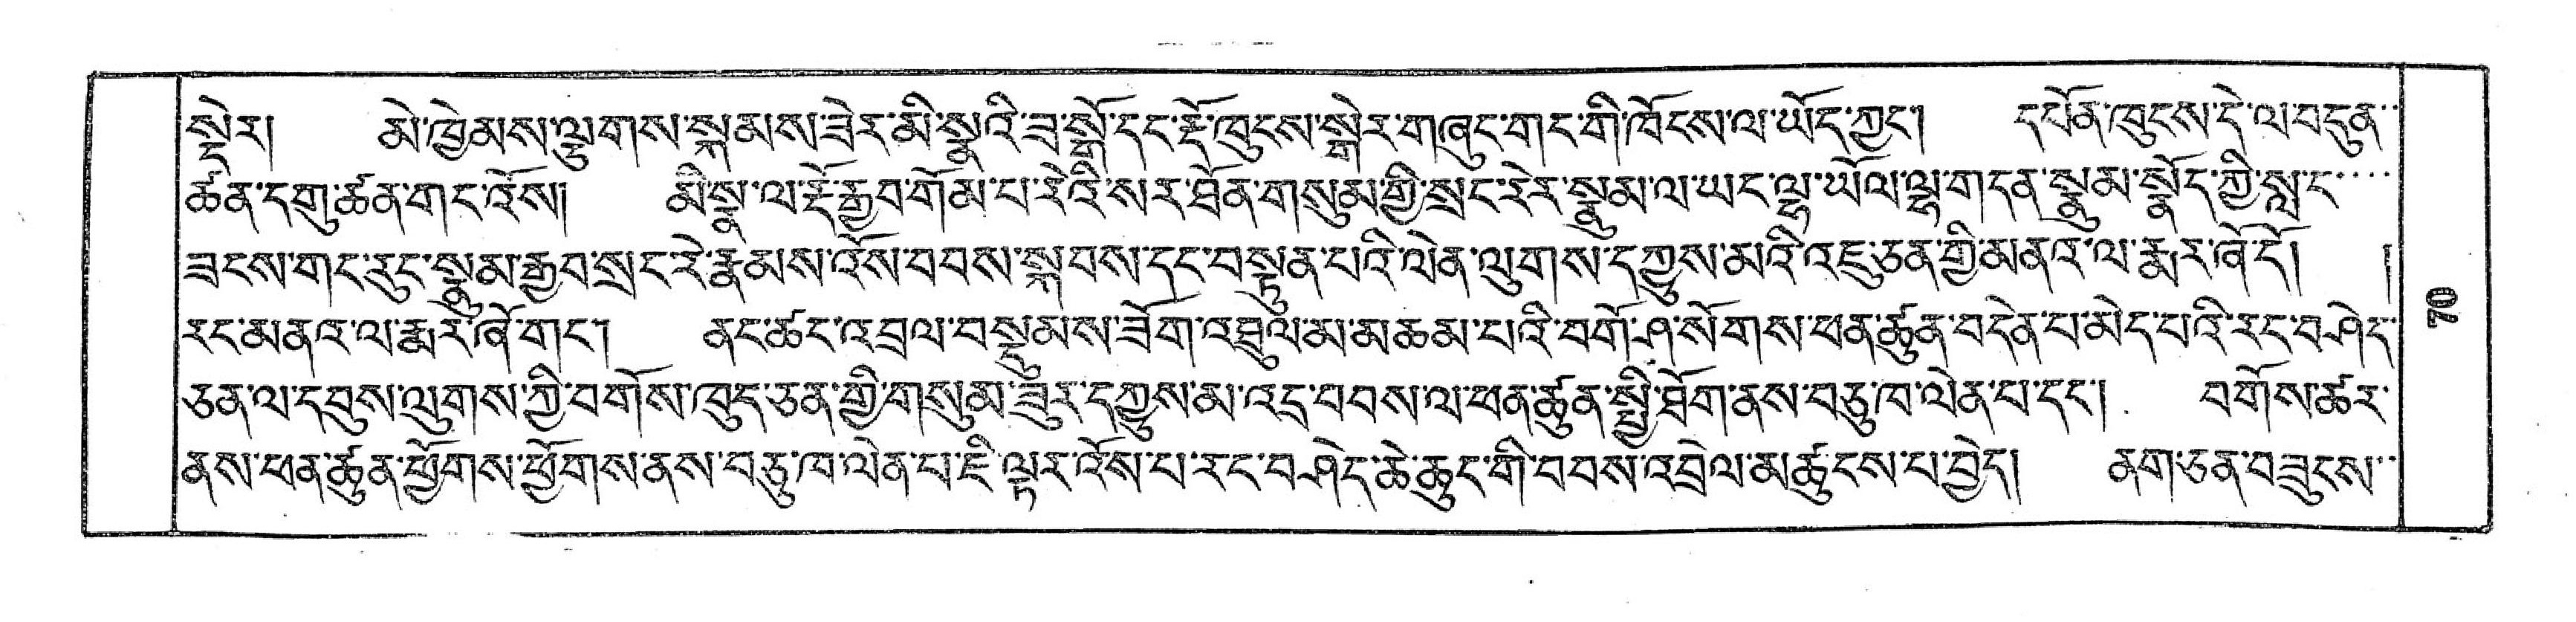 སྡེར། མེ་ཁྱེམས་ལྕགས་སྐམས་ཟེར་མི་སྣའི་ཟ་སྒོ་དང་རྡོ་ཁུངས་སྒེར་གཞུང་གང་གི་ཁོངས་ལ་ཡོད་ཀྱང་། དཔོན་ཁུངས་དེ་ལ་བདུན་
ཚན་དགུ་ཚན་གང་འོས། མི་སྣ་ལ་རྡོ་རྒྱབ་གོམ་པ་རེའི་སར་ཐོན་གསུམ་གྱི་སྲང་རེར་སྣུམ་ལ་ཡང་ལྷ་ཡོལ་ལྷ་གདན་སྣུམ་སྣོད་ཀྱི་སླ་ང་
ཟངས་གང་རུང་སྣུམ་རྒྱབ་སྲང་རེ་རྣམས་འོས་བབས་སྐབས་དང་བསྟུན་པའི་ལེན་ལུགས་དཀྱུས་མའི་འཇུ་ཅན་གྱི་མནའ་ལ་རྨར་ཞོ་དོ། །
རང་མནའ་ལ་རྨར་ཞོ་གང་། ནང་ཚང་འབྲལ་བསྡུམས་ཟོག་འཐྲུལ་མ་མཆམ་པའི་བགོ་ཤ་སོགས་ཕན་ཚུན་བདེན་པ་མེད་པའི་རང་བཤེད་
ཅན་ལ་དབུས་ལུགས་ཀྱི་བགོས་ཁུད་ཅན་གྱི་གསུམ་ཟུར་དཀྱུས་མ་འདྲ་བབས་ལ་ཕན་ཚུན་སྤྱི་ཐོག་ནས་བཅུ་ཁ་ལེན་པ་དང་། བགོས་ཚར་
ནས་ཕན་ཚུན་ཕྱོགས་ཕྱོགས་ནས་བཅུ་ཁ་ལེན་པ་ཇི་ལྟར་འོས་པ་རང་བཤེད་ཆེ་ཆུང་གི་བབས་འབྲེལ་མཚུངས་པ་བྱེད། ནག་ཅན་བཟུངས་